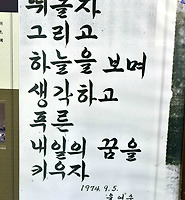 뛰놀자
그리고
하늘을 보며
생각하고
푸른
내일의 꿈을
키우자
1974. 9. 5.